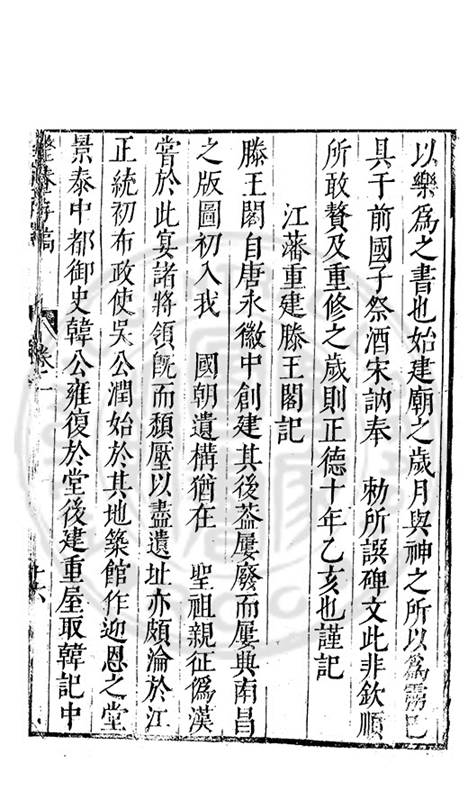 以樂爲之書也始建廟之歲月與神之所以爲靈已
具于前國子祭酒宋訥奉　勑所譔碑文此非欽順
所敢贅及重修之歲則正德十年乙亥也謹記
江藩重建滕王閣記
滕王閣自唐永徽中創建其後葢屢廢而屢興南昌
之版圖初入我　國朝遺構猶在　聖祖親征僞漢
嘗於此宴諸將領旣而頹壓以盡遺址亦頗淪於江
正統初布政使吳公潤始於其地築館作迎恩之堂
景泰中都御史韓公雍復於堂後建重屋取韓記中
整菴存稿
卷一
十六